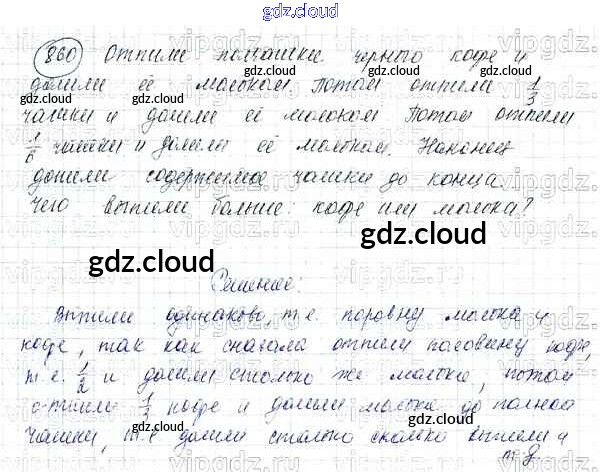 gdz.cloud
860 Отпили полчашки черного кофе и
долили её молоком. Потом отпили 1/3
чашки и долили её молоком. Потом отпили
1/6 чашки и долили её молоком. Наконец
допили содержимое чашки до конца.
Чего выпили больше: кофе или молока?
Решение:
Выпили одинаково, т.е. поровну молока и
кофе, так как сначала отпили половину кофе,
т.е. 1/2 и долили столько же молока, потом
отпили 1/3 кофе и долили молока до полной
чашки, т.е долили столько сколько выпили и
т.д.